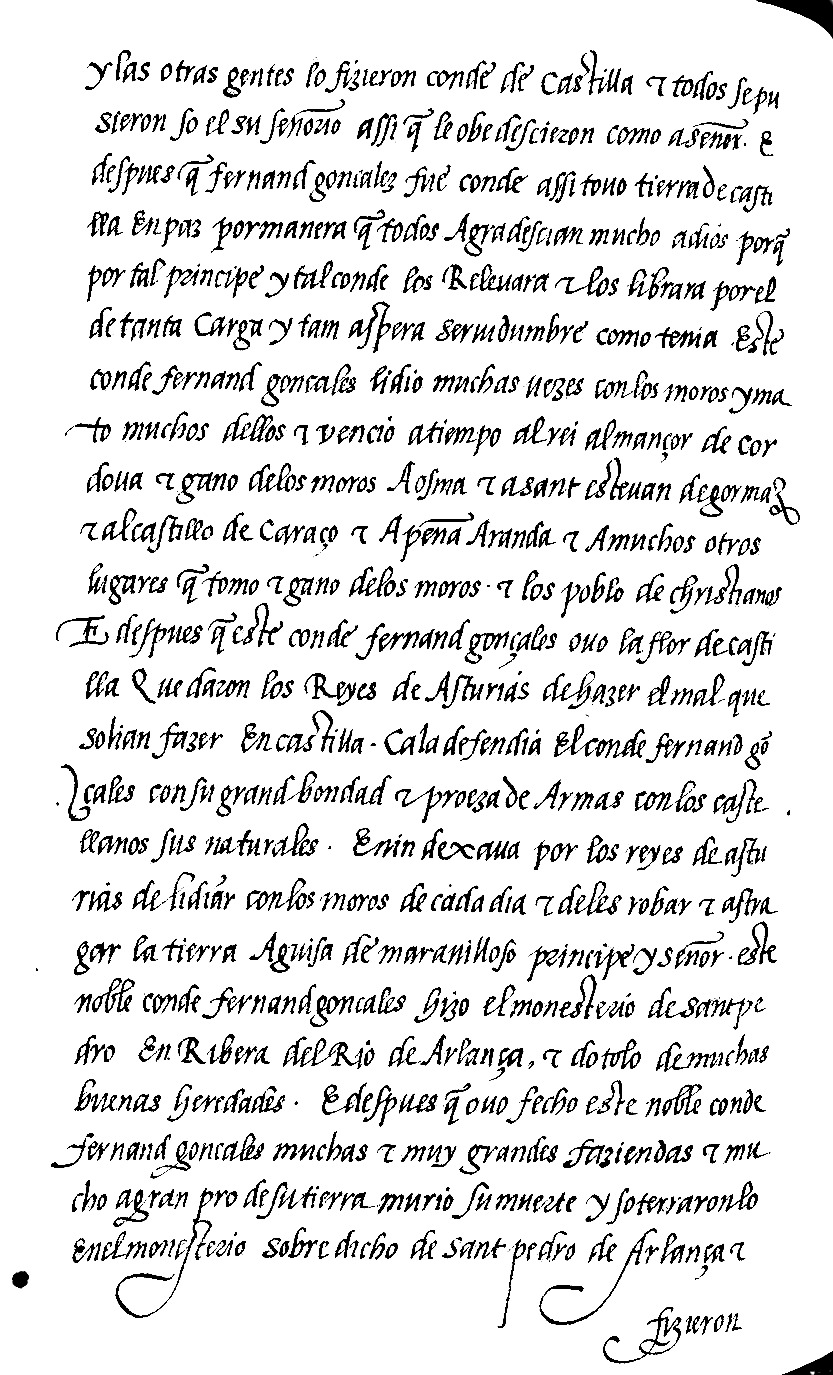 y las otras gentes lo fizieron conde de Castilla τ todos se pu
sieron so el su señorio assi q̃ le obedescieron como a señor. E
despues q̃ fernand goncalez fue conde assi tovo tierra de casti
lla En paz por manera q̃ todos Agradescian mucho a dios porq̃
por tal principe y tal conde los Relevara τ los librara por el
de tanta Carga y tam aspera servidumbre como tenia Este
conde fernand gonçales lidio muchas vezes con los moros y ma
to muchos dellos τ vencio a tiempo al rei almançor de Cor
dova τ gano de los moros A osma τ a sant estevan de gormaz
τ al castillo de Caraço τ A peña Aranda τ A muchos otros
lugares q̃ tomo τ gano de los moros. τ los poblo de christianos
E despues q̃ este conde fernand gonçales ovo la flor de casti
lla Quedaron los Reyes de Asturias de hazer el mal que
solian fazer En castilla. Ca la defendia El conde fernand gõ
çales con su grand bondad τ proeza de Armas con los caste
llanos sus naturales. E nin dexava por los reyes de astu
rias de lidiar con los moros de cada dia τ de les robar τ astra
gar la tierra A guisa de maravilloso principe y señor. este
noble conde fernand goncales hizo el monesterio de sant pe
dro En Ribera del Rio de Arlança, τ dotolo de muchas
buenas heredades. E despues q̃ ovo fecho este noble conde
fernand goncales muchas τ muy grandes faziendas τ mu
cho a gran pro de su tierra murio su muerte y soterraronlo
En el monesterio sobre dicho de sant pedro de Arlança τ
fizieron